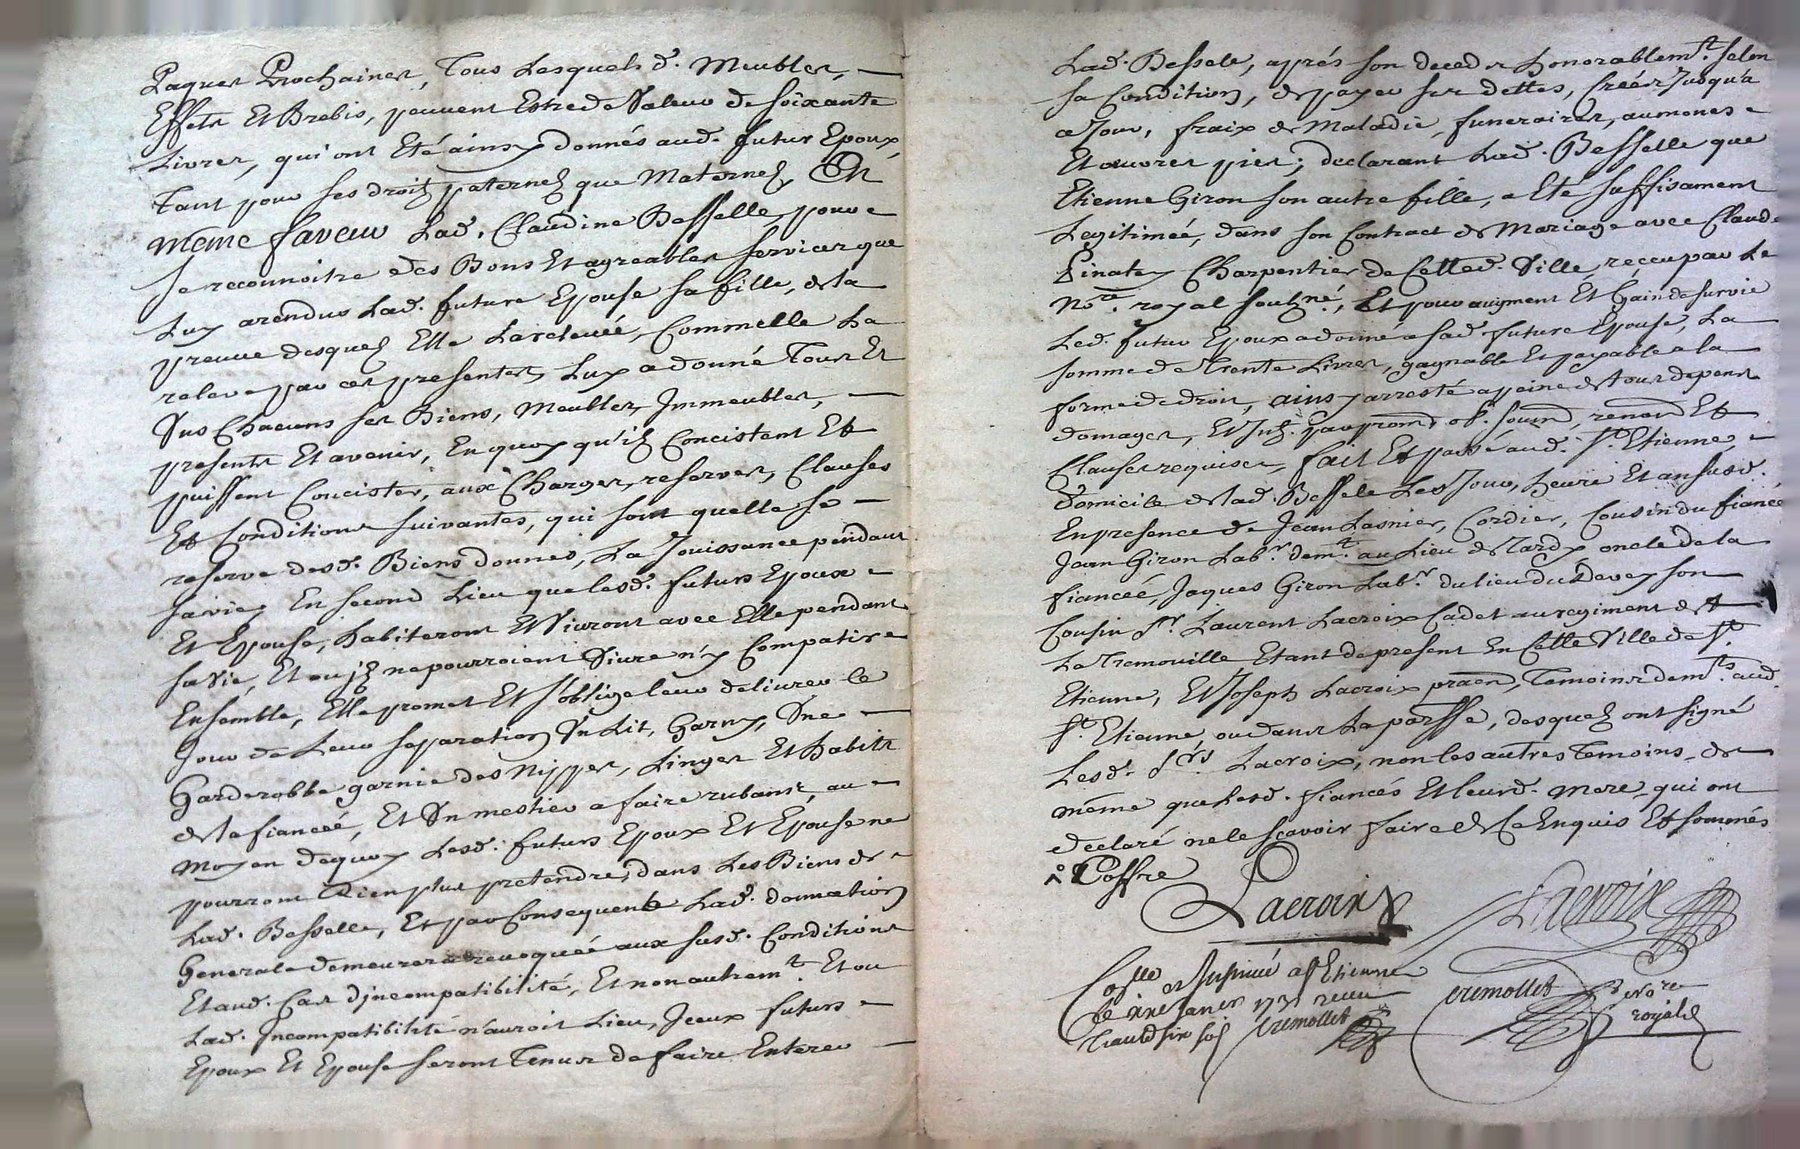 Paques Prochaines, Tous Lesquels d. Meubles,
Effets Et Brebis, peuvent Estre de Valeur de soixante
Livres, qui ont Eté ainsy donnés aud. futur Epoux,
Tant pour ses droits paternels que Maternels, En
même faveur Lad. Claudine Besselle, pour
se reconnoitre des Bons Et agreables services que
Luy a rendus Lad. future Epouse sa fille, de la
preuve desquels Elle La relevée, Comm'elle La
releve par ces presentes, Luy a donné Tous Et
Uns Chacuns ses Biens, Meubles, Immeubles,
presents Et avenir, En quoy qu'ils Concistent Et
puissent Concister, aux Charges, reserves, Clauses
Et Conditions suivantes, qui sont qu'elle se
reserve desd. Biens donnés, La Jouissance pendant
sa vie, En second Lieu que lesd. futurs Epoux
Et Epouse, habiteront Et Vivront avec Elle pendant
sa Vie, Et ou ils ne pourroient Vivre n'y Compatir
Ensemble, Elle promet Et s'oblige leur delivrer le
Jour de Leur separation Un Lit, Garny, Une
Garderobbe garnie des Nippes, Linges Et habits
de la fiancée, Et Un mestier a faire rubans, au
moyen de quoy Lesd. futurs Epoux Et Epouse ne
pourront Rien plus pretendre, dans Les Biens de
Lad. Besselle, Et par Consequent Lad. donnation
Generale demeurera revoquée aux susd. Conditions
Et aud. Cas d'jncompatibilité, Et non autremt. Et ou
Lad. Incompatibilité n'auroit Lieu, Iceux futurs
Epoux Et Epouse seront Tenus de faire Enterer
Lad. Bessele, aprés son deceds honorablemt. selon
sa Condition, de payer ses dettes, Créés Jusqu'a
ce Jour, fraix de Maladie, funeraires, aumones
Et œuvres pies; declarant Lad. Besselle que
Etienne Giron son autre fille, a Eté suffisament
Legitimée, dans son Contract de Mariage avec Claude
Pinatey Charpentier de Cette d. Ville, reçeu par Le
Nore. royal souszné., Et pour augment Et Gain de survie
Led. futur Epoux a donné a sad. future Epouse, La
somme de Trente Livres, gagnable Et payable a la
forme de droit, ainsy arresté a peine de tous depens
domages, Et Jnts. par prom. ob. soum. renond. Et
Clauses requises, fait Et passé aud. St. Etienne,
domicile de lad. Bessele Les Jour, heure Et an susd.
En presence de Jean Lasnier, Cordier, Cousin du fiancé
Jean Giron Labr. demt. au Lieu de Tardy oncle de la
fiancée, Jaques Giron Labr. du lieu du Devey son
Cousin Sr. Laurent Lacroix Cadet au regiment de
La Tremouille Etant de present En Cette Ville de St.
Etienne, Et Joseph Lacroix praen, Temoins demts. aud.
St. Etienne ou dans La parsse, desquels ont signé
Lesd. Srs. Lacroix, non les autres Temoins, de
même que lesd. fiancés Et leurd. Mere, qui ont
declaré ne le sçavoir faire de Ce Enquis Et sommés
Coffre
Lacroix
Lacroix
Colle et Insinué a St Etienne
Le Janer 1731 receu
six sols Cremollet
Cremollet Nore
royal